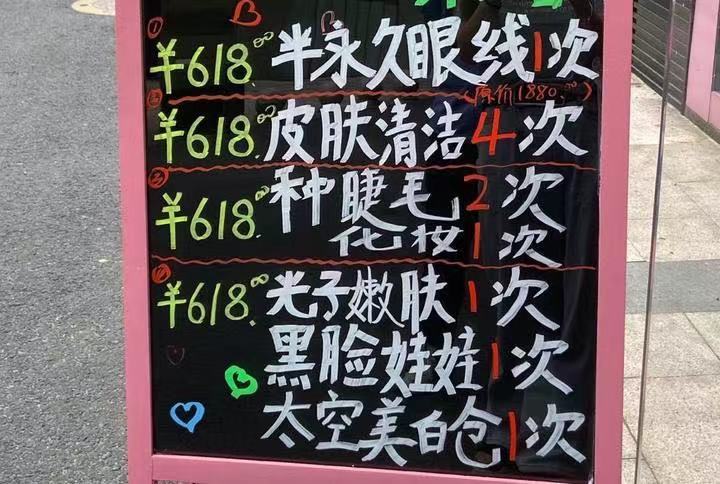 ① ¥618.00 半永久眼线1次
(原价1880.00)
② ¥618.00 皮肤清洁4次
③ ¥618.00 种睫毛2次
化妆1次
④ ¥618.00 光子嫩肤1次
黑脸娃娃1次
太空美白仓1次